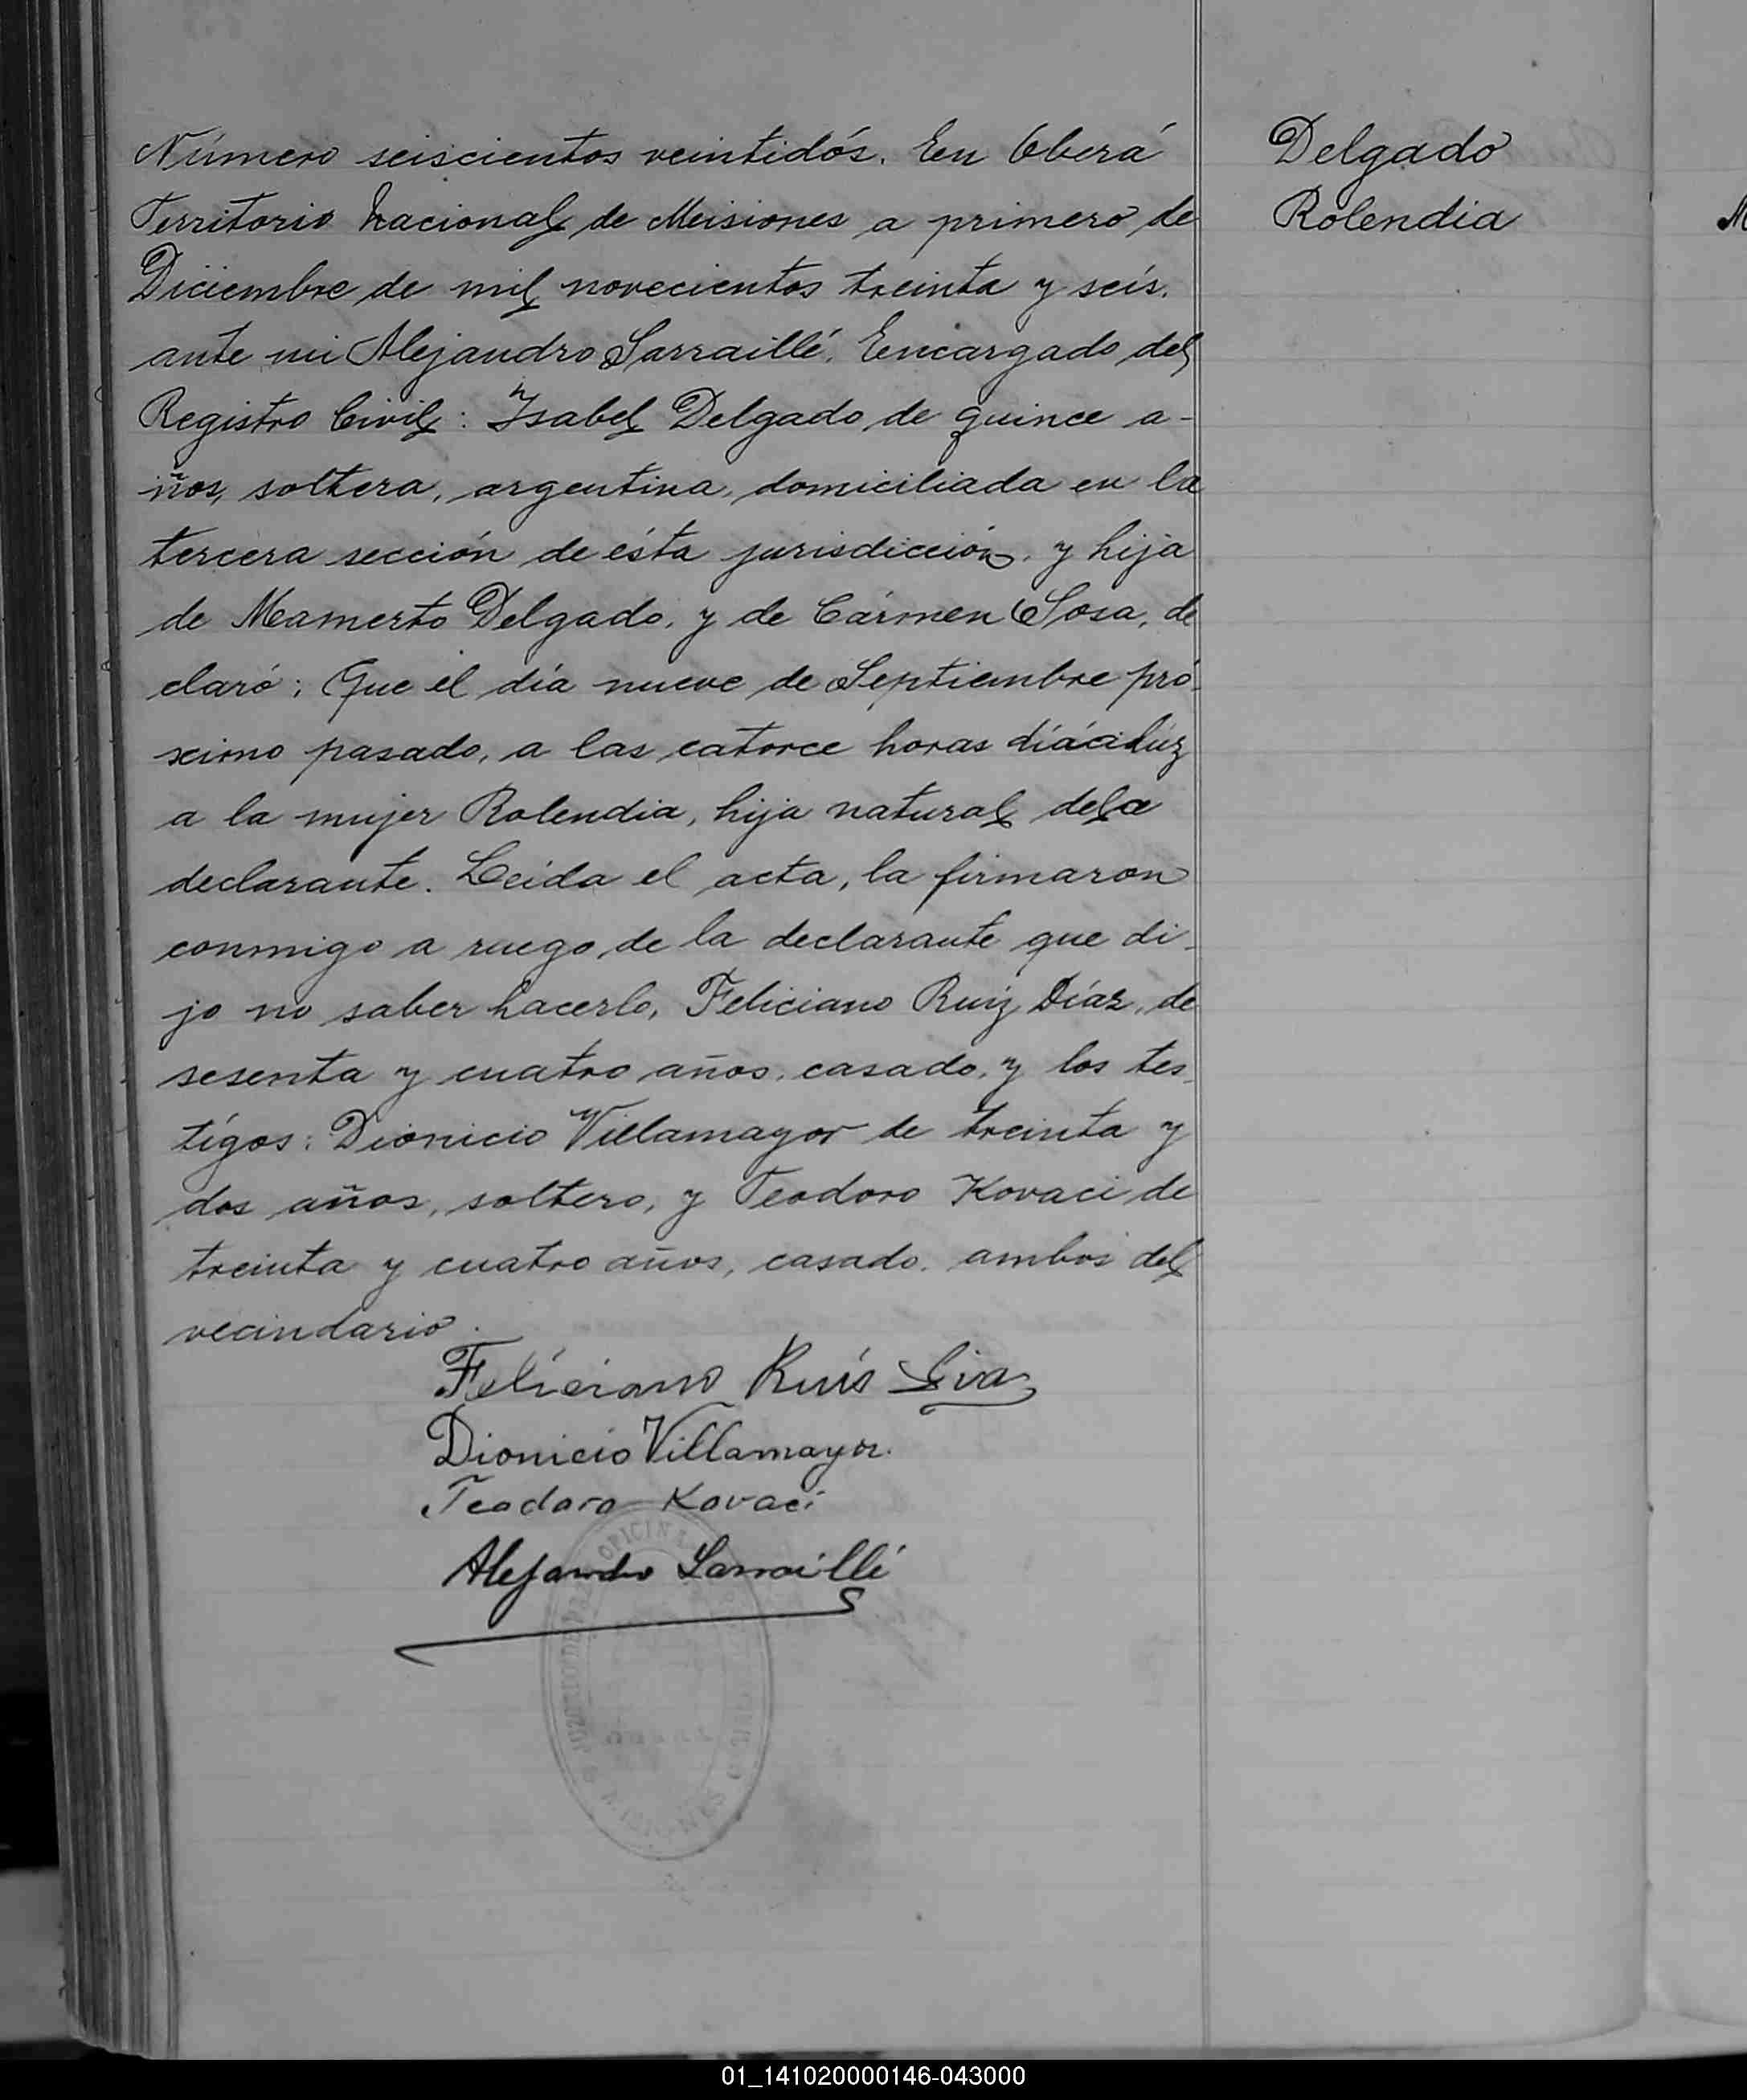 Número seiscientos veintidós. En Oberá
Territorio Nacional de Misiones a primero de
Diciembre de mil novecientos treinta y seis.
ante mi Alejandro Sarraillé. Encargado del
Registro Civil: Isabel Delgado de quince a-
ños, soltera, argentina, domiciliada en la
tercera sección de ésta jurisdicción. y hija
de Mamerto Delgado, y de Cármen Sosa, de
claró: Que el día nueve de Septiembre pró-
ximo pasado, a las catorce horas dió a lúz
a la mujer Rolendia, hija natural de la
declarante. Leida el acta, la firmaron
conmigo a ruego de la declarante que di-
jo no saber hacerlo, Feliciano Ruiz Díaz, de
sesenta y cuatro años, casado, y los tes-
tigos: Dionicio Villamayor de treinta y
dos años, soltero, y Teodoro Kovaci de
treinta y cuatro años, casado. ambos del
vecindario.
Feliciano Ruís Dias
Dionicio Villamayor.
Teodoro Kovaci
Alejandro Sarraillé
OFICINA
MISIONES
Delgado
Rolendia
01_141020000146-043000